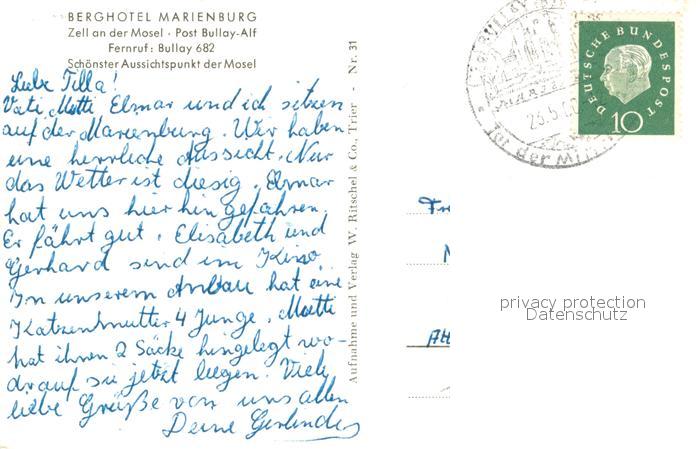 BERGHOTEL MARIENBURG
Zell an der Mosel · Post Bullay-Alf
Fernruf: Bullay 682
Schönster Aussichtspunkt der Mosel
Liebe Tilla!
Vati, Mutti Elmar und ich sitzen
auf der Marienburg. Wir haben
eine herrliche Aussicht. Nur
das Wetter ist diesig. Elmar
hat uns hier hin gefahren.
Er fährt gut. Elisabeth und
Gerhard sind im Kino.
In unserem Anbau hat eine
Katzenmutter 4 Junge. Mutti
hat ihnen 2 Säcke hingelegt wo-
drauf sie jetzt liegen. Viele
liebe Grüße von uns allen
Deine Gerlinde
Aufnahme und Verlag W. Ritschel & Co., Trier - Nr. 31
DEUTSCHE BUNDESPOST
10
BULLAY
23.5.
Tor der Mittel
Fr
AH
privacy protection
Datenschutz